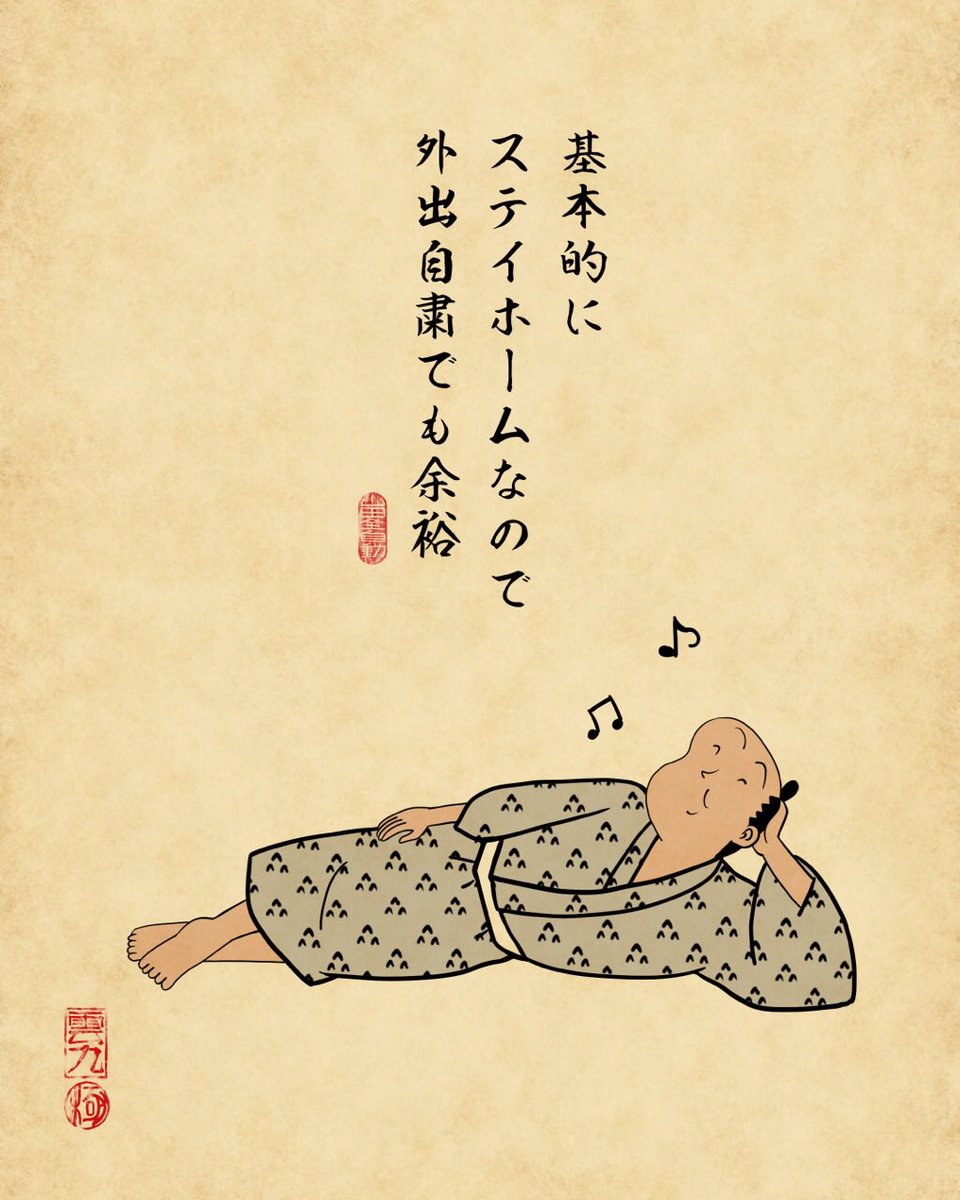 基本的に
ステイホームなので
外出自粛でも余裕